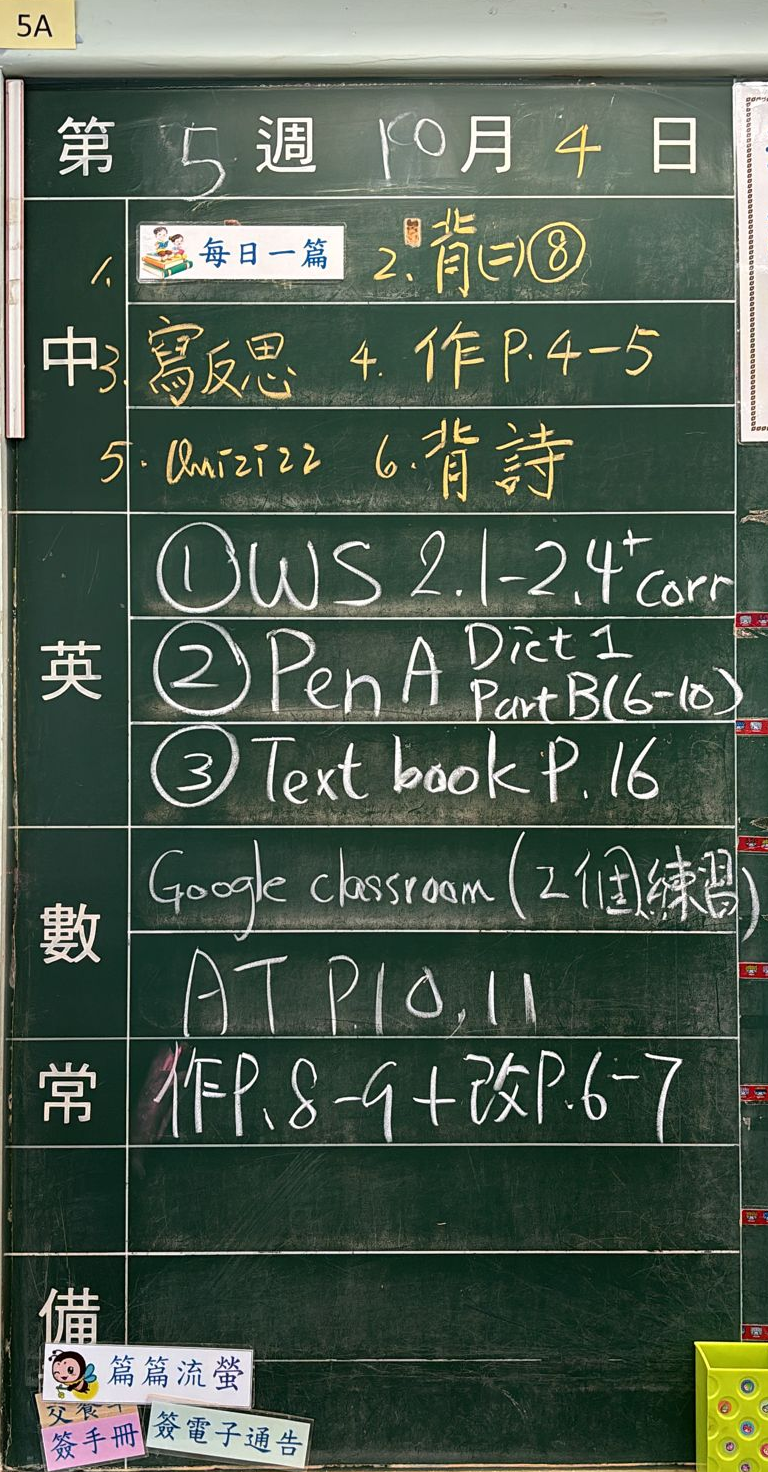 5A
第 5 週 10 月 4 日
中
1. 每日一篇 2. 背(二)⑧
3. 寫反思 4. 作 P.4-5
5. Quizizz 6. 背詩
英
① WS 2.1-2.4+corr
② Pen A Dict 1
Part B(6-10)
③ Text book P.16
數
Google classroom (2個練習)
AT P.10,11
常
作P.8-9+改P.6-7
備
篇篇流螢
簽手冊
簽電子通告